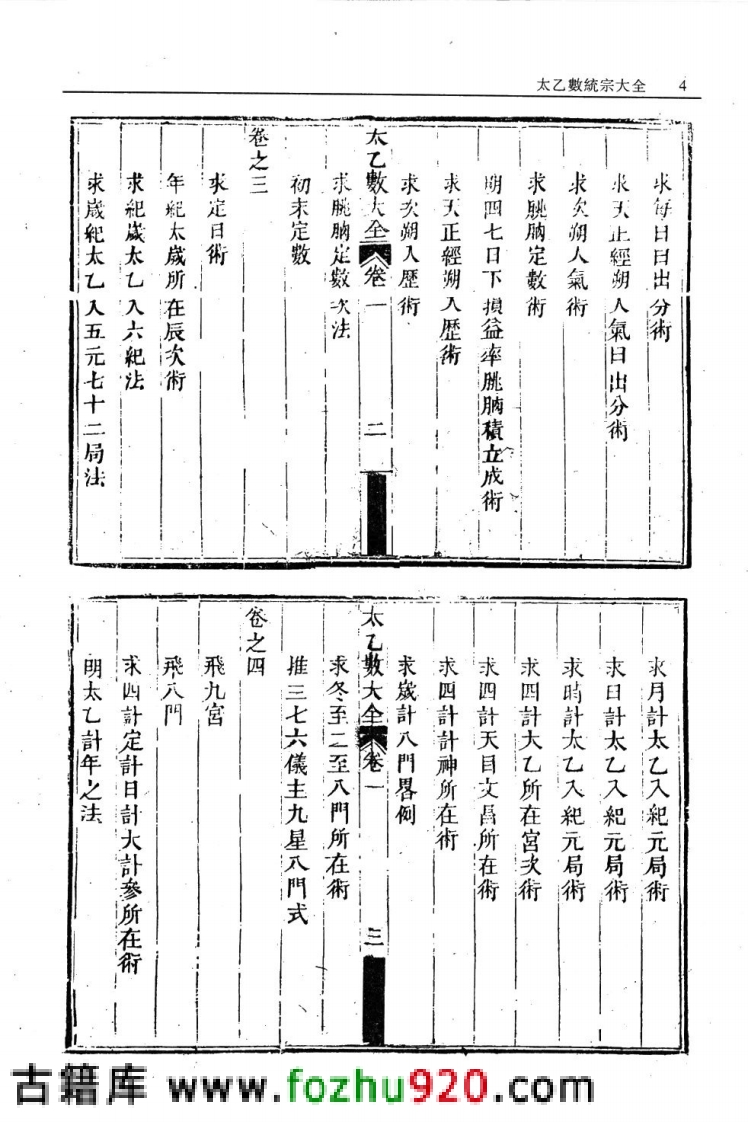 太乙數統宗大全 4
求每日日出分術
求天正經朔入氣日出分術
求次朔入氣術
求朓朒定數術
明四七日下損益率朓朒積立成術
求天正經朔入歷術
求次朔入歷術
太乙數大全 卷一 二
求朓朒定數次法
初末定數
卷之三
求定日術
年紀太歲所在辰次術
求紀歲太乙入六紀法
求歲紀太乙入五元七十二局法
求月計太乙入紀元局術
求日計太乙入紀元局術
求時計太乙入紀元局術
求四計大乙所在宮次術
求四計天目文昌所在術
求四計計神所在術
求歲計八門畧例
太乙數大全 卷一 三
求冬至二至八門所在術
推三七六儀主九星八門式
卷之四
飛九宮
飛八門
求四計定計日計大計參所在術
明太乙計年之法
古籍库 www.fozhu920.com